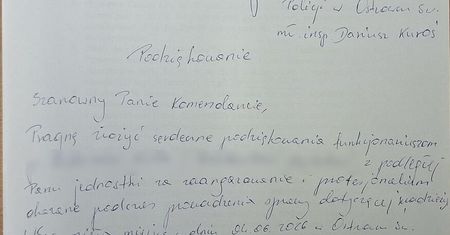 Policji w Ostrowi Św.
mł. insp. Dariusz Kuroś
Podziękowanie
Szanowny Panie Komendancie,
Pragnę złożyć serdeczne podziękowania funkcjonariuszom
z podległej
Panu jednostki za zaangażowanie i profesjonalizm
okazane podczas prowadzenia sprawy dotyczącej kradzieży
miejsce dnia 01.06.2026 w Ostrowcu Św.